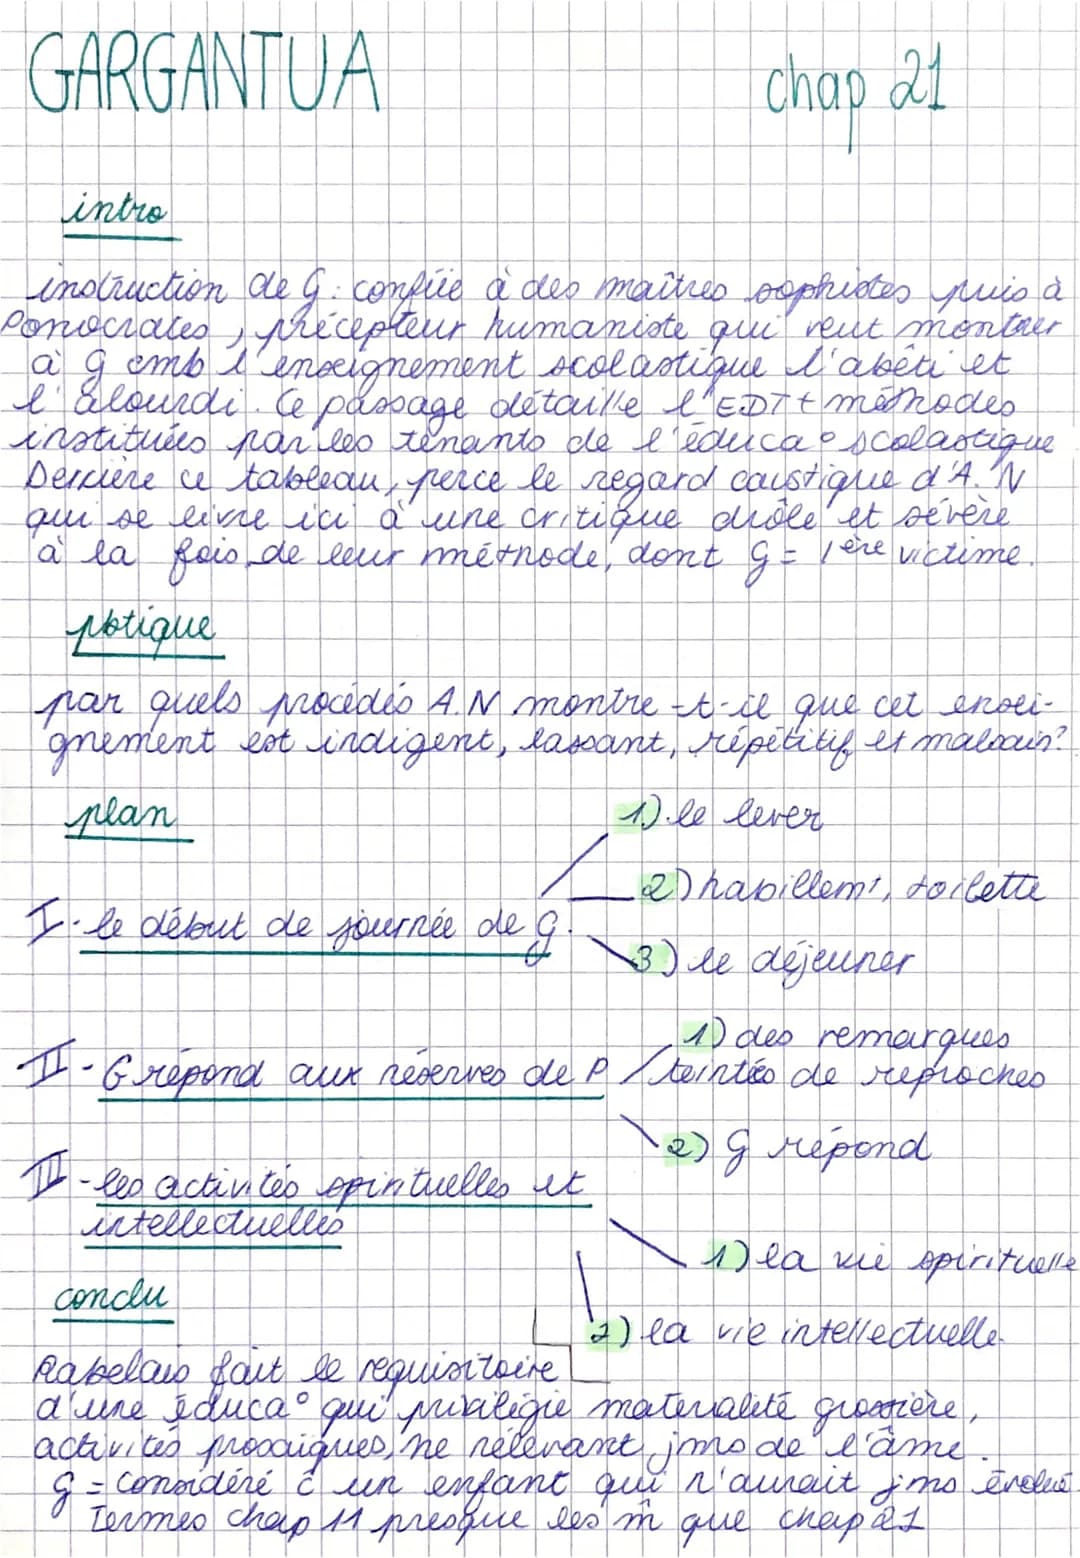 GARGANTUA chap 21
intro
instruction de G : confiée à des maîtres sophistes puis à
Ponocrates, précepteur humaniste qui veut montrer
à G cmb l'enseignement scolastique l'abêti et
l'alourdi. Ce passage détaille l'EDT + méthodes
instituées par les tenants de l'éduca° scolastique
Derrière ce tableau, perce le regard caustique d'A.N
qui se livre ici à une critique drôle et sévère
à la fois de leur méthode, dont G = 1ère victime.
pbtique
par quels procédés A.N montre-t-il que cet ensei-
gnement est indigent, lassant, répétitif et malsain?
plan
1) le lever
2) habillemt, toilette
I - le début de journée de G.
3) le déjeuner
1) des remarques
II - G répond aux réserves de P teintées de reproches
2) G répond
III - les activités spirituelles et
intellectuelles
1) la vie spirituelle
conclu
2) la vie intellectuelle.
Rabelais fait le requisitoire
d'une éduca° qui privilégie materialité grossière,
activités prosaïques, ne relevant jms de l'âme.
G = considéré c un enfant qui n'aurait jms évolué
Termes chap 11 presque les m̂ que chap 21